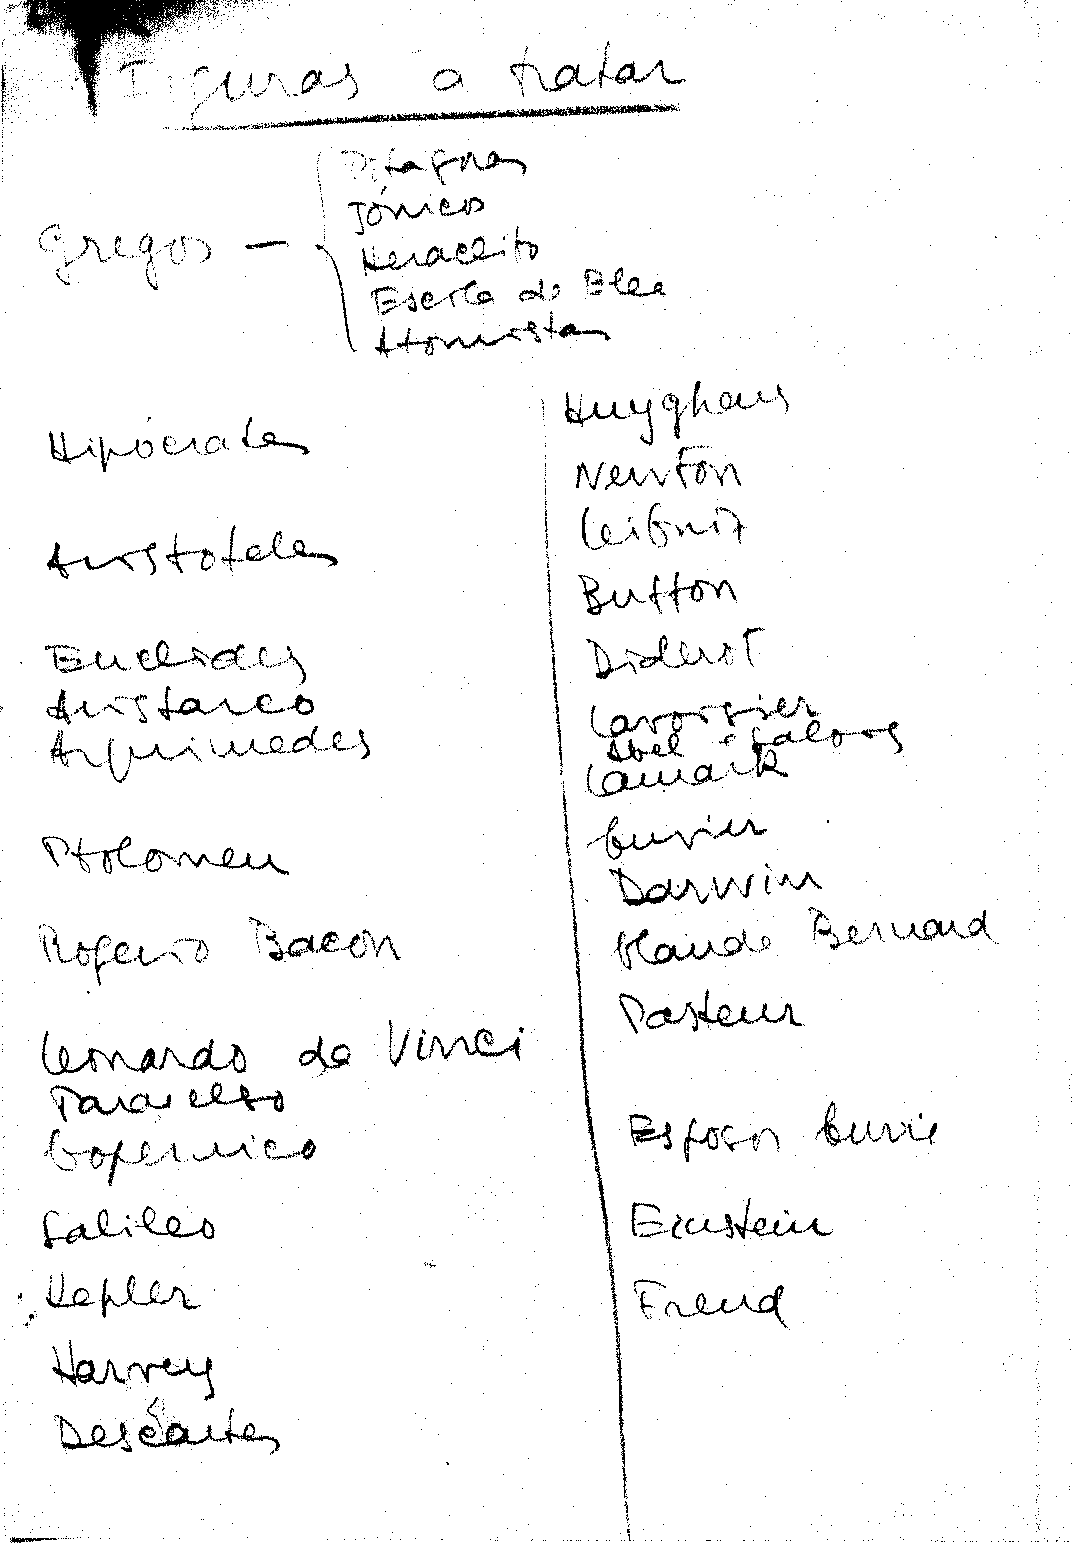 Figuras a tratar
Pitágoras
Jónicos
Gregos — Heraclito
Escola de Elea
Atomistas
Hipócrates
Aristoteles
Euclides
Aristarco
Arquimedes
Ptolomeu
Rogerio Bacon
Leonardo da Vinci
Paracelso
Copernico
Galileo
Kepler
Harvey
Descartes
Huyghens
Newton
Leibniz
Buffon
Diderot
Lavoisier
Abel e Galois
Lamark
Cuvier
Darwin
Claude Bernard
Pasteur
Esposos Curie
Einstein
Freud